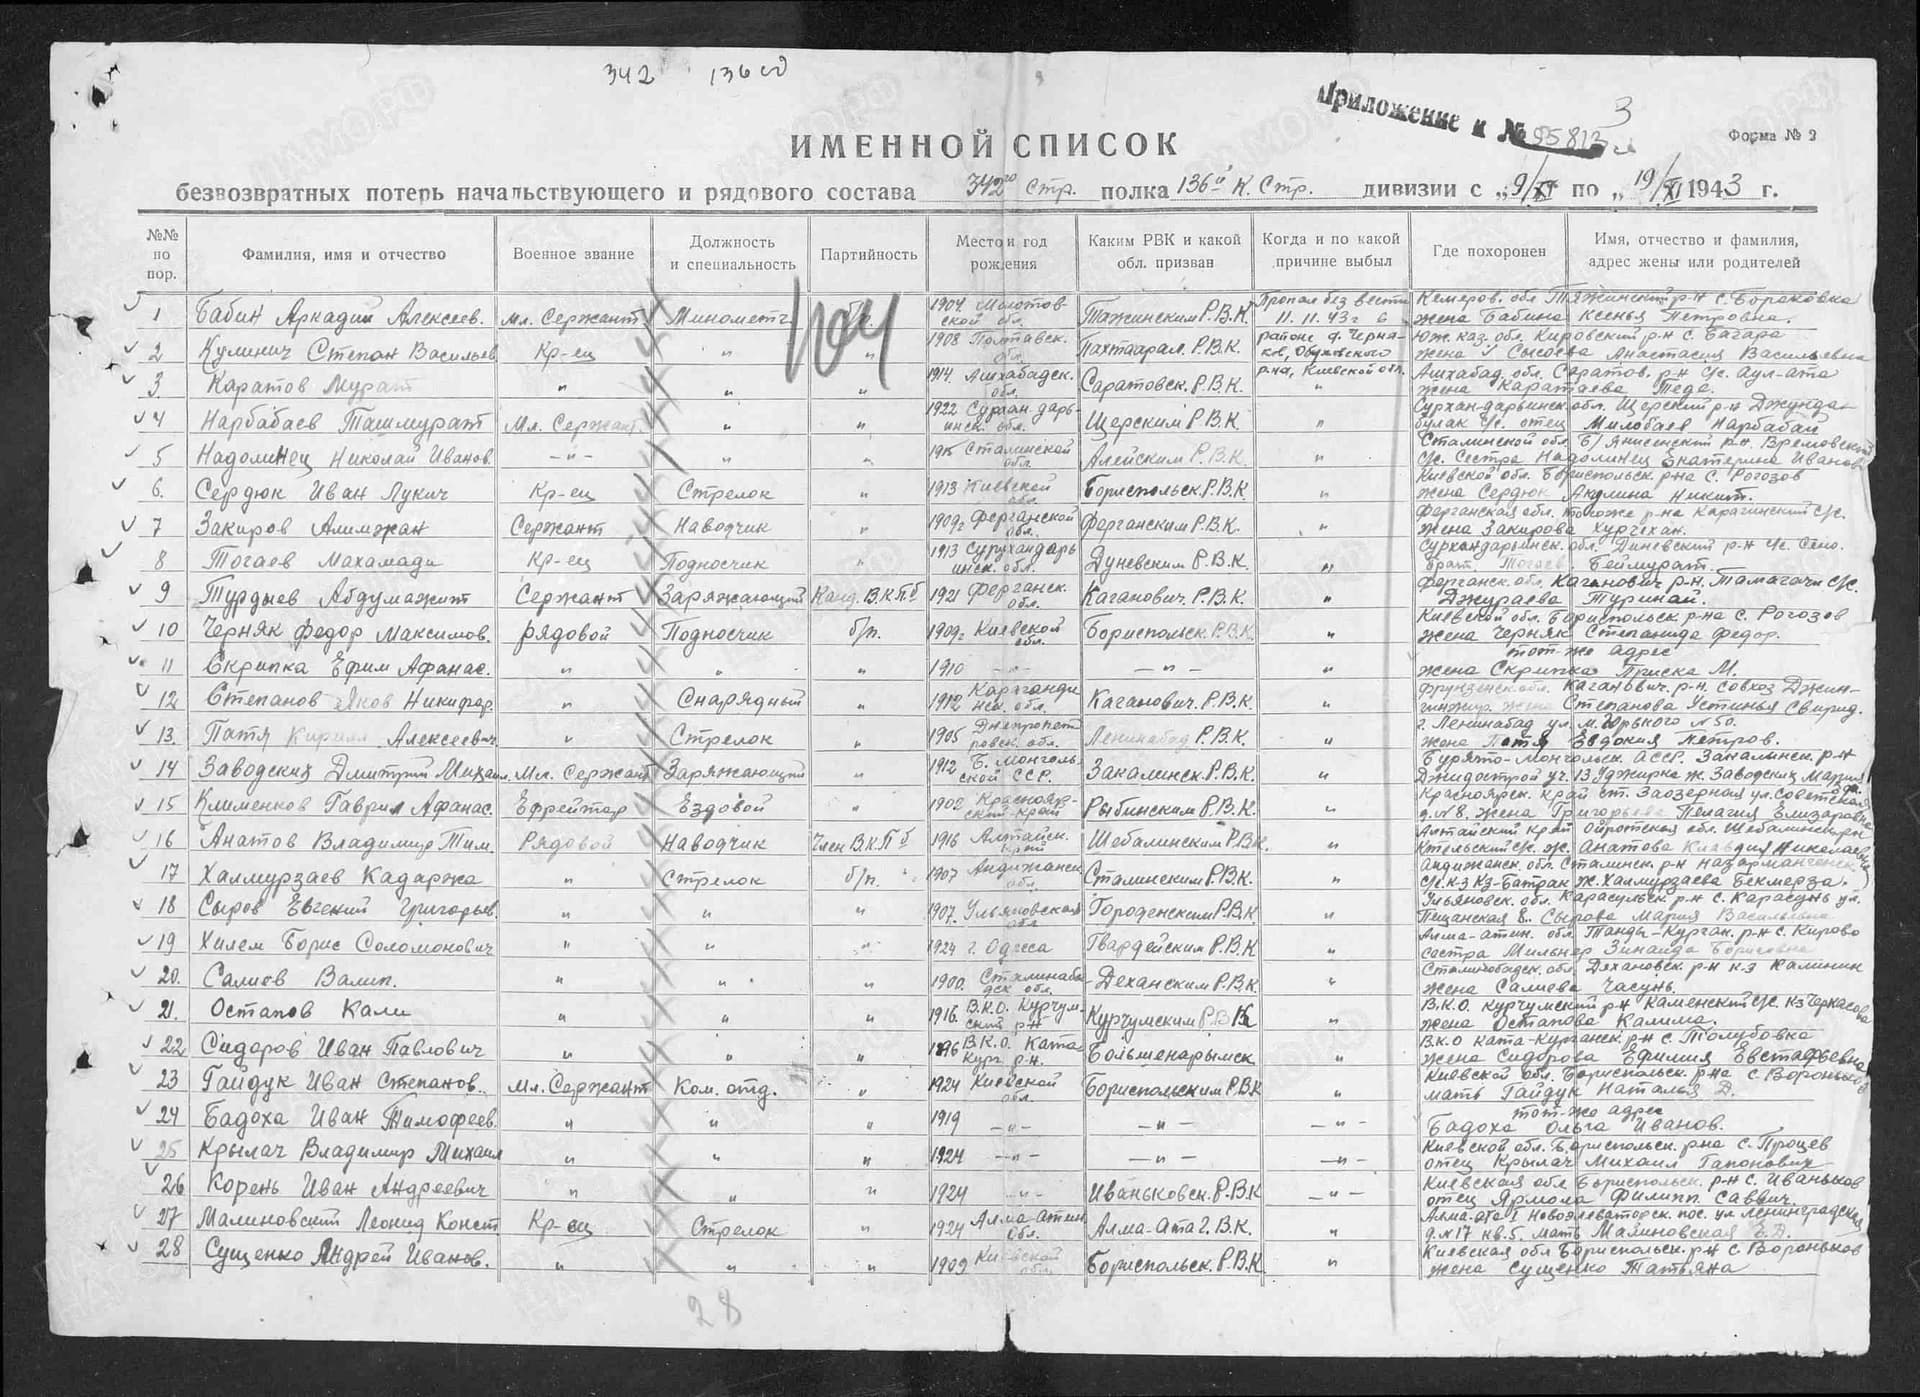 342 136 сд
Приложение к № 95813 с
3
Форма № 2
ИМЕННОЙ СПИСОК
безвозвратных потерь начальствующего и рядового состава 342го Стр. полка 136й К. Стр. дивизии с „9/XI по „19/XI 1943 г.
№№ по пор. Фамилия, имя и отчество Военное звание Должность и специальность Партийность Место и год рождения Каким РВК и какой обл. призван Когда и по какой причине выбыл Где похоронен Имя, отчество и фамилия, адрес жены или родителей
104
1 Бабин Аркадий Алексеев. Мл. Сержант Минометч. 1904 Молотовской обл. Тажинским Р.В.К. Пропал без вести 11.11.43 г в Кемеров. обл Тяжинский р-н с. Бораковка жена Бабина Ксенья Петровна.
2 Кулинич Степан Васильев. Кр-ец " " 1908 Полтавск. обл. Пахтаарал. Р.В.К. районе д. Черняхов, Обуховского р-на, Киевской обл. Юж. каз. обл. Кировский р-н с. Багара жена Сысоева Анастасия Васильевна
3. Каратов Мурат " " " 1914. Ашхабадск. обл. Саратовск. Р.В.К. " Ашхабад. обл. Саратов. р-н с/с. аул-ата жена Каратаева Теде.
4 Нарбабаев Ташмурат Мл. Сержант " " 1922 Сурхан-дарьинск. обл. Щерским Р.В.К " Сурхан-дарьинск. обл. Щерский р-н Джундабулак с/с. отец Милобаев Нарбабай
5 Надолинец Николай Иванов. -"- " " Сталинской обл. Алейским Р.В.К. " Сталинской обл. Б/Янисенский р-н. Времовский с/с. Сестра Надолинец Екатерина Иванов
6. Сердюк Иван Лукич Кр-ец Стрелок " 1913 Киевской обл. Бориспольск. Р.В.К " Киевской обл. Бориспольск. р-на с. Рогозов жена Сердюк Акулина Никит.
7 Закиров Алимжан Сержант Наводчик " 1909г Ферганской обл. Ферганским Р.В.К. " Ферганская обл. того же р-на Карагинский с/с. жена Закирова Хурчехан.
8 Тогаев Махамади Кр-ец Подносчик " 1913 Сурхандарьинск. обл. Дуневским Р.В.К. " Сурхандарьинск. обл. Диневский р-н с/с. Сено. брат. Тогаев Беймурат.
9 Турдыев Абдумажит Сержант Заряжающий Канд. ВКПб 1921 Ферганск. обл. Каганович. Р.В.К. " Ферганск. обл. Каганович р-н. Тамагачи с/с. Джураева Туринай.
10 Черняк Федор Максимов. рядовой Подносчик б/п. 1909г Киевской обл. Бориспольск. Р.В.К. " Киевской обл. Бориспольск р-на с. Рогозов жена Черняк Степанида Федор.
11 Скрипка Ефим Афанас. " " " 1910 -"- -"- " тот-же адрес жена Скрипка Приска М.
12 Степанов Яков Никифор. " Снарядный " 1912 Карагандинск. обл. Каганович. Р.В.К. " Фрунзенск. обл. Каганович. р-н. совхоз Джингинжир. жена Степанова Устинья Свирид.
13. Патя Кирилл Алексеевич. " Стрелок " 1905 Днепропетровск. обл. Ленинабад Р.В.К. " г. Ленинабад ул. М. Горького №50. жена Патя Евдокия Петров.
14 Заводский Дмитрий Михаил. Мл. Сержант Заряжающий " 1912 Б. Монгольской ССР. Закалинск. Р.В.К " Бурято-Монгольск. АССР. Закалинск. р-н Джидострой уч. 13 Уджирка ж. Заводских Мария
15 Клименков Гаврил Афанас. Ефрейтор Ездовой " 1902 Красноярский край Рыбинским Р.В.К. " Красноярск. край ст. Заозерная ул. Советская д. №8. жена Григорьева Пелагия Елизаровна
16 Анатов Владимир Тим. Рядовой Наводчик Член ВКПб 1916 Алтайск. край Шебалинским Р.В.К. " Алтайский край Ойротская обл. Шебалинский рн ж. Анатова Клавдия Николаевна
17 Халмурзаев Кадаржа " Стрелок б/п. 1907 Андижанск. обл. Сталинским Р.В.К. " Андижанск. обл. Сталинск. р-н Назарманченск с/с. к-з Кз-Батрак ж. Халмурзаева Бекмерза.
18 Сыров Евгений Григорьев. " " " 1907. Ульяновская обл Городенским Р.В.К " Ульяновск. обл. Карасульск. р-н с. Карасунь ул. Пещанская 8.. Сырова Мария Васильевна
19 Хилем Борис Соломонович " " " 1924 г. Одесса Гвардейским Р.В.К " Алма-атин. обл. Талды-Курган. р-н с. Кирово сестра Мильнер Зинаида Борисовна
20. Салиев Валип. " " " 1900. Сталинабадск обл. Деханским Р.В.К " Сталинобадск. обл. Деханновск. р-н к-з Калинин жена Салиева Часунь.
21. Остапов Кали " " " 1916. В.К.О. Курчумский р-н Курчумским Р.В.К " В.К.О. Курчумский р-н Каменский с/с. кз Черкасова жена Остапова Калима.
22 Сидоров Иван Павлович " " " 1896 В.К.О. Ката-Кург. р-н. Большенарымск " В.К.О Ката-Курганск. р-н с Голубовка жена Сидорова Ефимия Евстафьевна
23 Гайдук Иван Степанов.. Мл. Сержант Ком. отд. " 1924 Киевской обл. Бориспольским Р.В.К " Киевской обл. Бориспольск. р-на с. Вороньков мать Гайдук Наталья Д.
24 Бадоха Иван Тимофеев. " " " 1919 -"- -"- -"- тот-же адрес Бадоха Ольга Иванов.
25 Крылач Владимир Михаил " " " 1924 -"- -"- -"- Киевской обл. Бориспольск. рна с. Процев отец Крылач Михаил Гапонович
26 Корень Иван Андреевич " " " 1924 -"- Иваньковск. Р.В.К -"- Киевская обл Бориспольск. р-н с. Иваньков отец Ярмола Филипп. Саввич.
27 Малиновский Леонид Конст Кр-ец Стрелок " 1924 Алма-атин обл. Алма-Ата г. В.К. " Алма-ата I Новоэлеваторск. пос. ул Ленинградская д. №17 кв. 5. мать Малиновская Е.Д.
28 Сущенко Андрей Иванов. " " " 1909 Киевской обл. Бориспольск. Р.В.К " Киевская обл Бориспольск. р-н с. Вороньков жена Сущенко Татьяна
28